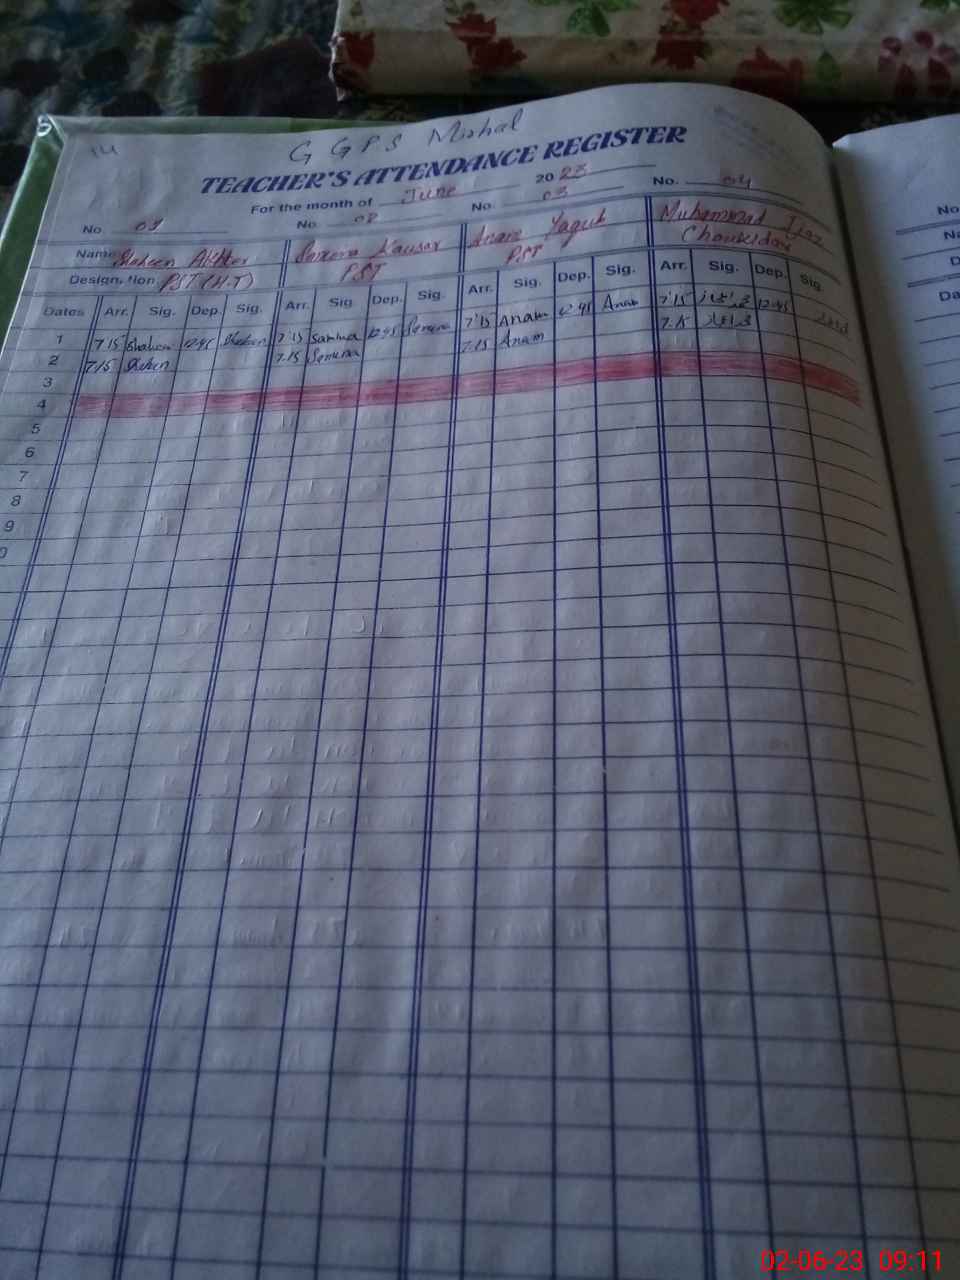 14
G G P S Mohal
TEACHER'S ATTENDANCE REGISTER
For the month of June 2023
No 01 No. 02 No. 03 No. 04
Name Shaheen Akhter Samina Kausar Anam Yaqub Muhammad Ijaz
Choukidar
Design. tion PST (H.T) PST PST
Dates Arr. Sig. Dep. Sig. Arr. Sig Dep. Sig. Arr. Sig. Dep. Sig. Arr. Sig. Dep. Sig
1 7:15 Shaheen 12:45 Shaheen 7:15 Samina 12:45 Samina 7:15 Anam 12:45 Anam 7:15 12:45
2 7:15 Shaheen 7:15 Samina 7:15 Anam 7:15
3
4
5
6
7
8
9
0
No
Na
D
Da
02-06-23 09:11